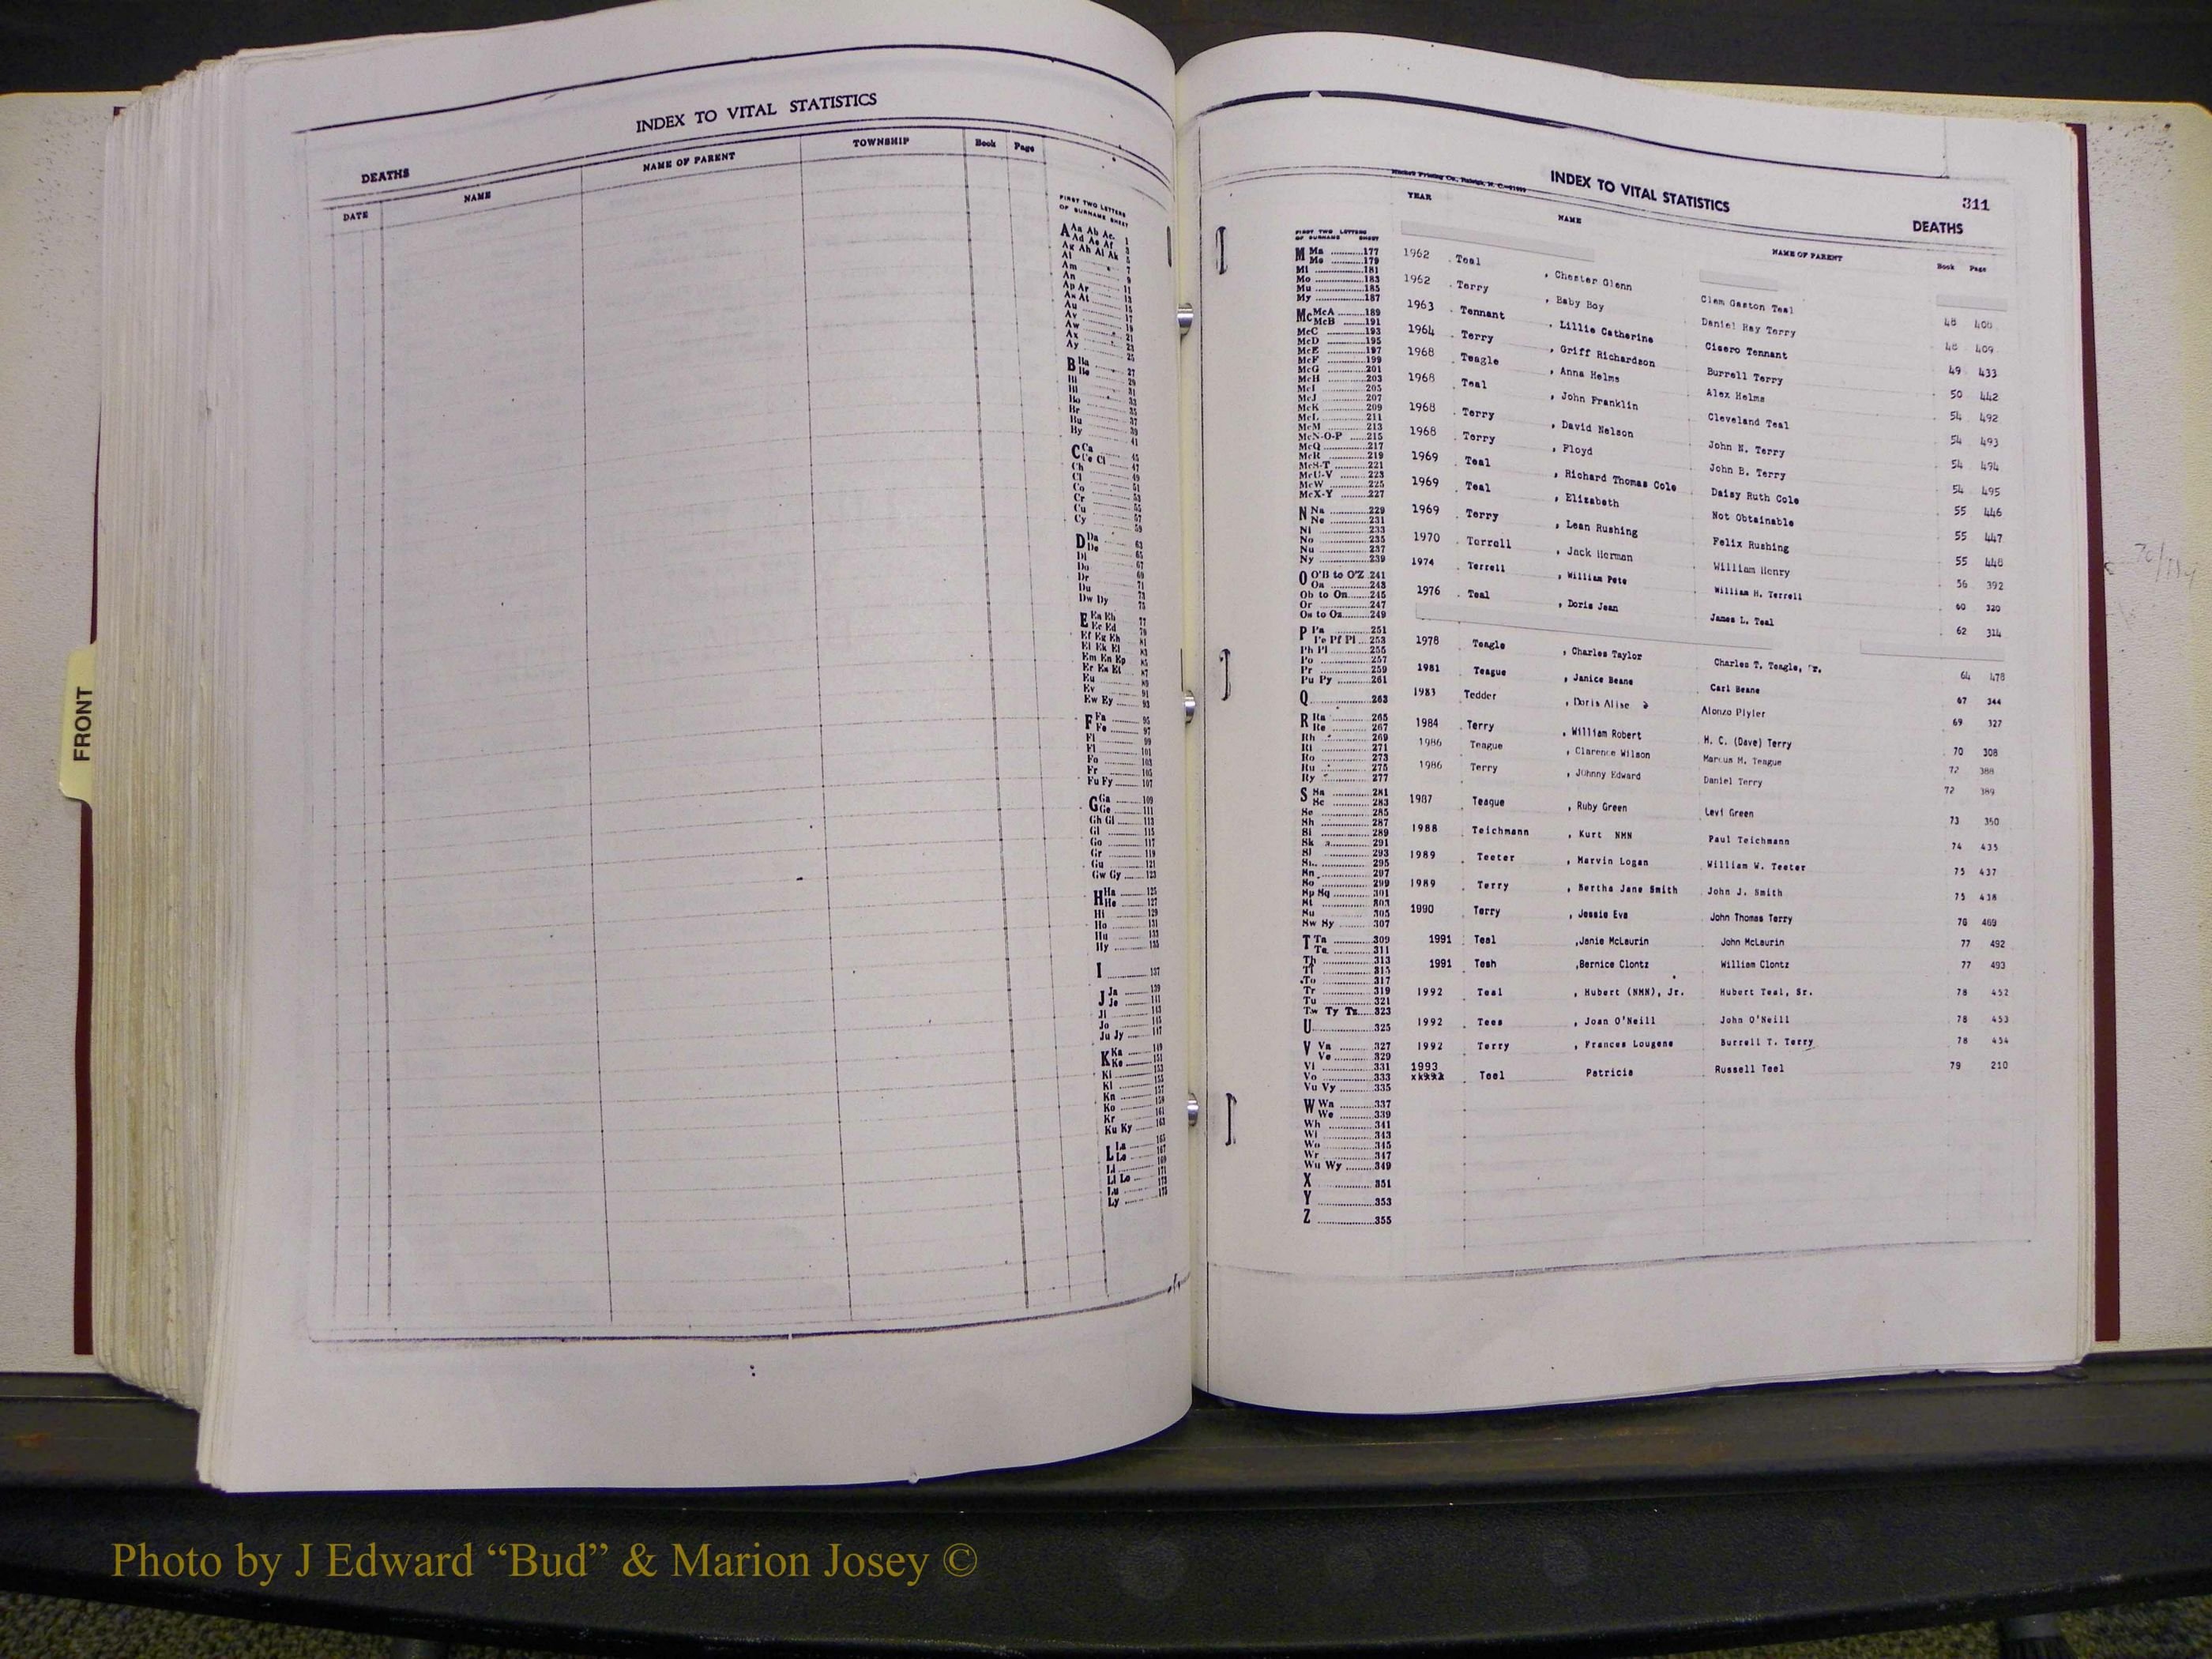 INDEX TO VITAL STATISTICS
DEATHS
DATE NAME NAME OF PARENT TOWNSHIP Book Page
FIRST TWO LETTERS
OF SURNAME SHEET
A Aa Ab Ac 1
Ad Ae Af 3
Ag Ah Ai Ak 5
Al 7
Am 9
An
Ap Ar 11
As At 13
Au 15
Av 17
Aw 19
Ax 21
Ay 23
25
B Ba 27
Be 29
Bi 31
Bl 33
Bo 35
Br 37
Bu 39
By 41
C Ca 45
Ce Ci 47
Ch 49
Cl 51
Co 53
Cr 55
Cu 57
Cy 59
D Da 63
De 65
Di 67
Do 69
Dr 71
Du 73
Dw Dy 75
E Ea Eb 77
Ec Ed 79
Ef Eg Eh 81
Ei Ek El 83
Em En Ep 85
Er Es Et 87
Eu 89
Ev 91
Ew Ey 93
F Fa 95
Fe 97
Fi 99
Fl 101
Fo 103
Fr 105
Fu Fy 107
G Ga 109
Ge 111
Gh Gi 113
Gl 115
Go 117
Gr 119
Gu 121
Gw Gy 123
H Ha 125
He 127
Hi 129
Ho 131
Hu 133
Hy 135
I 137
J Ja 139
Je 141
Ji 143
Jo 145
Ju Jy 147
K Ka 149
Ke 151
Ki 153
Kl 155
Kn 157
Ko 159
Kr 161
Ku Ky 163
L La 165
Le 167
Li 169
Ll Lo 171
Lu 173
Ly 175
FRONT
Printing Co., Raleigh, N. C.
INDEX TO VITAL STATISTICS
311
DEATHS
YEAR NAME NAME OF PARENT Book Page
FIRST TWO LETTERS
OF SURNAME SHEET
M Ma 177
Me 179
Mi 181
Mo 183
Mu 185
My 187
Mc McA 189
McB 191
McC 193
McD 195
McE 197
McF 199
McG 201
McH 203
McI 205
McJ 207
McK 209
McL 211
McM 213
McN-O-P 215
McQ 217
McR 219
McS-T 221
McU-V 223
McW 225
McX-Y 227
N Na 229
Ne 231
Ni 233
No 235
Nu 237
Ny 239
O O'B to O'Z 241
Oa 243
Ob to On 245
Or 247
Os to Oz 249
P Pa 251
Pe Pf Pi 253
Ph Pl 255
Po 257
Pr 259
Pu Py 261
Q 263
R Ra 265
Re 267
Rh 269
Ri 271
Ro 273
Ru 275
Ry 277
S Sa 281
Sc 283
Se 285
Sh 287
Si 289
Sk 291
Sl 293
Sm 295
Sn 297
So 299
Sp Sq 301
St 303
Su 305
Sw Sy 307
T Ta 309
Te 311
Th 313
Ti 315
To 317
Tr 319
Tu 321
Tw Ty Tz 323
U 325
V Va 327
Ve 329
Vi 331
Vo 333
Vu Vy 335
W Wa 337
We 339
Wh 341
Wi 343
Wo 345
Wr 347
Wu Wy 349
X 351
Y 353
Z 355
1962 Teal , Chester Glenn Clem Gaston Teal 48 408
1962 Terry , Baby Boy Daniel Ray Terry 48 409
1963 Tennant , Lillie Catherine Cisero Tennant 49 433
1964 Terry , Griff Richardson Burrell Terry 50 442
1968 Teagle , Anna Helms Alex Helms 54 492
1968 Teal , John Franklin Cleveland Teal 54 493
1968 Terry , David Nelson John N. Terry 54 494
1968 Terry , Floyd John B. Terry 54 495
1969 Teal , Richard Thomas Cole Daisy Ruth Cole 55 446
1969 Teal , Elizabeth Not Obtainable 55 447
1969 Terry , Lean Rushing Felix Rushing 55 448
1970 Terrell , Jack Herman William Henry 56 392
1974 Terrell , William Pete William H. Terrell 60 320
1976 Teal , Doris Jean James L. Teal 62 314
1978 Teagle , Charles Taylor Charles T. Teagle, Jr. 64 478
1981 Teague , Janice Beane Carl Beane 67 344
1983 Tedder , Doris Alise Alonzo Plyler 69 327
1984 Terry , William Robert H. C. (Dave) Terry 70 308
1986 Teague , Clarence Wilson Marcus M. Teague 72 388
1986 Terry , Johnny Edward Daniel Terry 72 389
1987 Teague , Ruby Green Levi Green 73 350
1988 Teichmann , Kurt NMN Paul Teichmann 74 435
1989 Teeter , Marvin Logan William W. Teeter 75 437
1989 Terry , Bertha Jane Smith John J. Smith 75 438
1990 Terry , Jessie Eva John Thomas Terry 76 469
1991 Teal ,Janie McLaurin John McLaurin 77 492
1991 Tesh ,Bernice Clontz William Clontz 77 493
1992 Teal , Hubert (NMN), Jr. Hubert Teal, Sr. 78 452
1992 Tees , Joan O'Neill John O'Neill 78 453
1992 Terry , Frances Lougene Burrell T. Terry 78 454
1993 Teel Patricia Russell Teel 79 210
Photo by J Edward “Bud” & Marion Josey ©